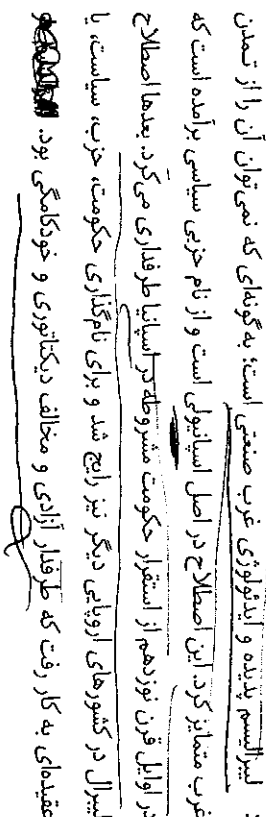 لیبرالیسم پدیده و ایدئولوژی غرب صنعتی است؛ به گونه‌ای که نمی‌توان آن را از تمدن
غرب متمایز کرد. این اصطلاح در اصل اسپانیولی است و از نام حزبی سیاسی برآمده است که
در اوایل قرن نوزدهم از استقرار حکومت مشروطه در اسپانیا طرفداری می‌کرد. بعدها اصطلاح
لیبرال در کشورهای اروپایی دیگر نیز رایج شد و برای نام‌گذاری حکومت، حزب، سیاست، یا
عقیده‌ای به کار رفت که طرفدار آزادی و مخالف دیکتاتوری و خودکامگی بود.